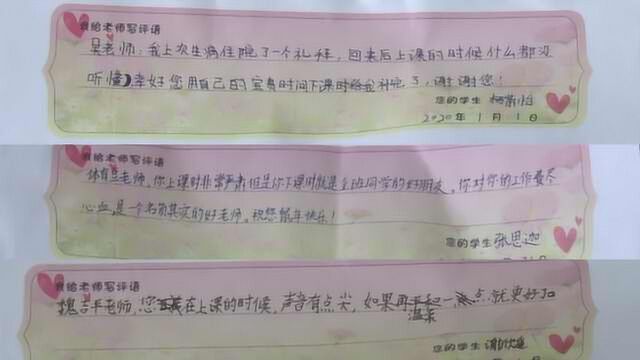 我给老师写评语
吴老师：我上次生病住院了一个礼拜，回来后上课的时候什么都没
听懂，幸好您用自己的宝贵时间下课时给我补完了，谢谢您！
您的学生
2020年1月1日
我给老师写评语
体育吴老师，你上课时非常严肃但是你下课时就是全班同学的好朋友。你对你的工作费尽
心血，是一个名符其实的好老师。祝您鼠年快乐！
您的学生 张思迦
我给老师写评语
槐吉平老师，您在上课的时候，声音有点尖，如果再温柔一点就更好了
您的学生